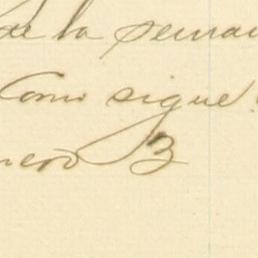 de la seman
Como sigue
nero 3